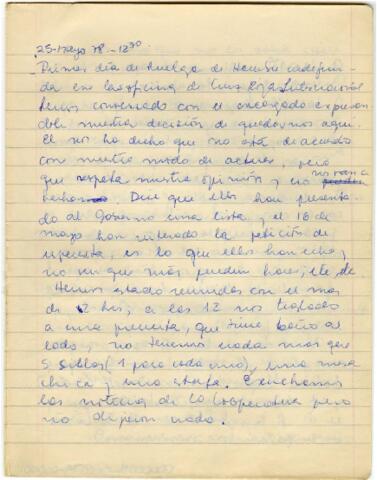 25-Mayo 78-12³⁰
Primer día de huelga de Hambre indefini-
da en la oficina de Cruz Roja Internacional
hemos conversado con el encargado
nuestra decisión de quedarnos aquí.
El nos ha dicho que no está de acuerdo
con nuestro modo de actuar, pero
que respeta nuestra opinión y no nos van a
Dice que ellos han presenta-
do al Gobierno una lista, y el 16 de
mayo han reiterado la petición de
respuesta, es lo que ellos han echo,
no ven que más pueden hacer, etc, etc
Hemos estado reunidos con el mas
de 2 hrs; a las 12 nos trasladó
a una piececita, que tiene baño al
lado, no tenemos nada mas que
5 sillas (1 para cada uno), una mesa
chica y una estufa. Escuchamos
las noticias de la Cooperativa pero
no dijeron nada.